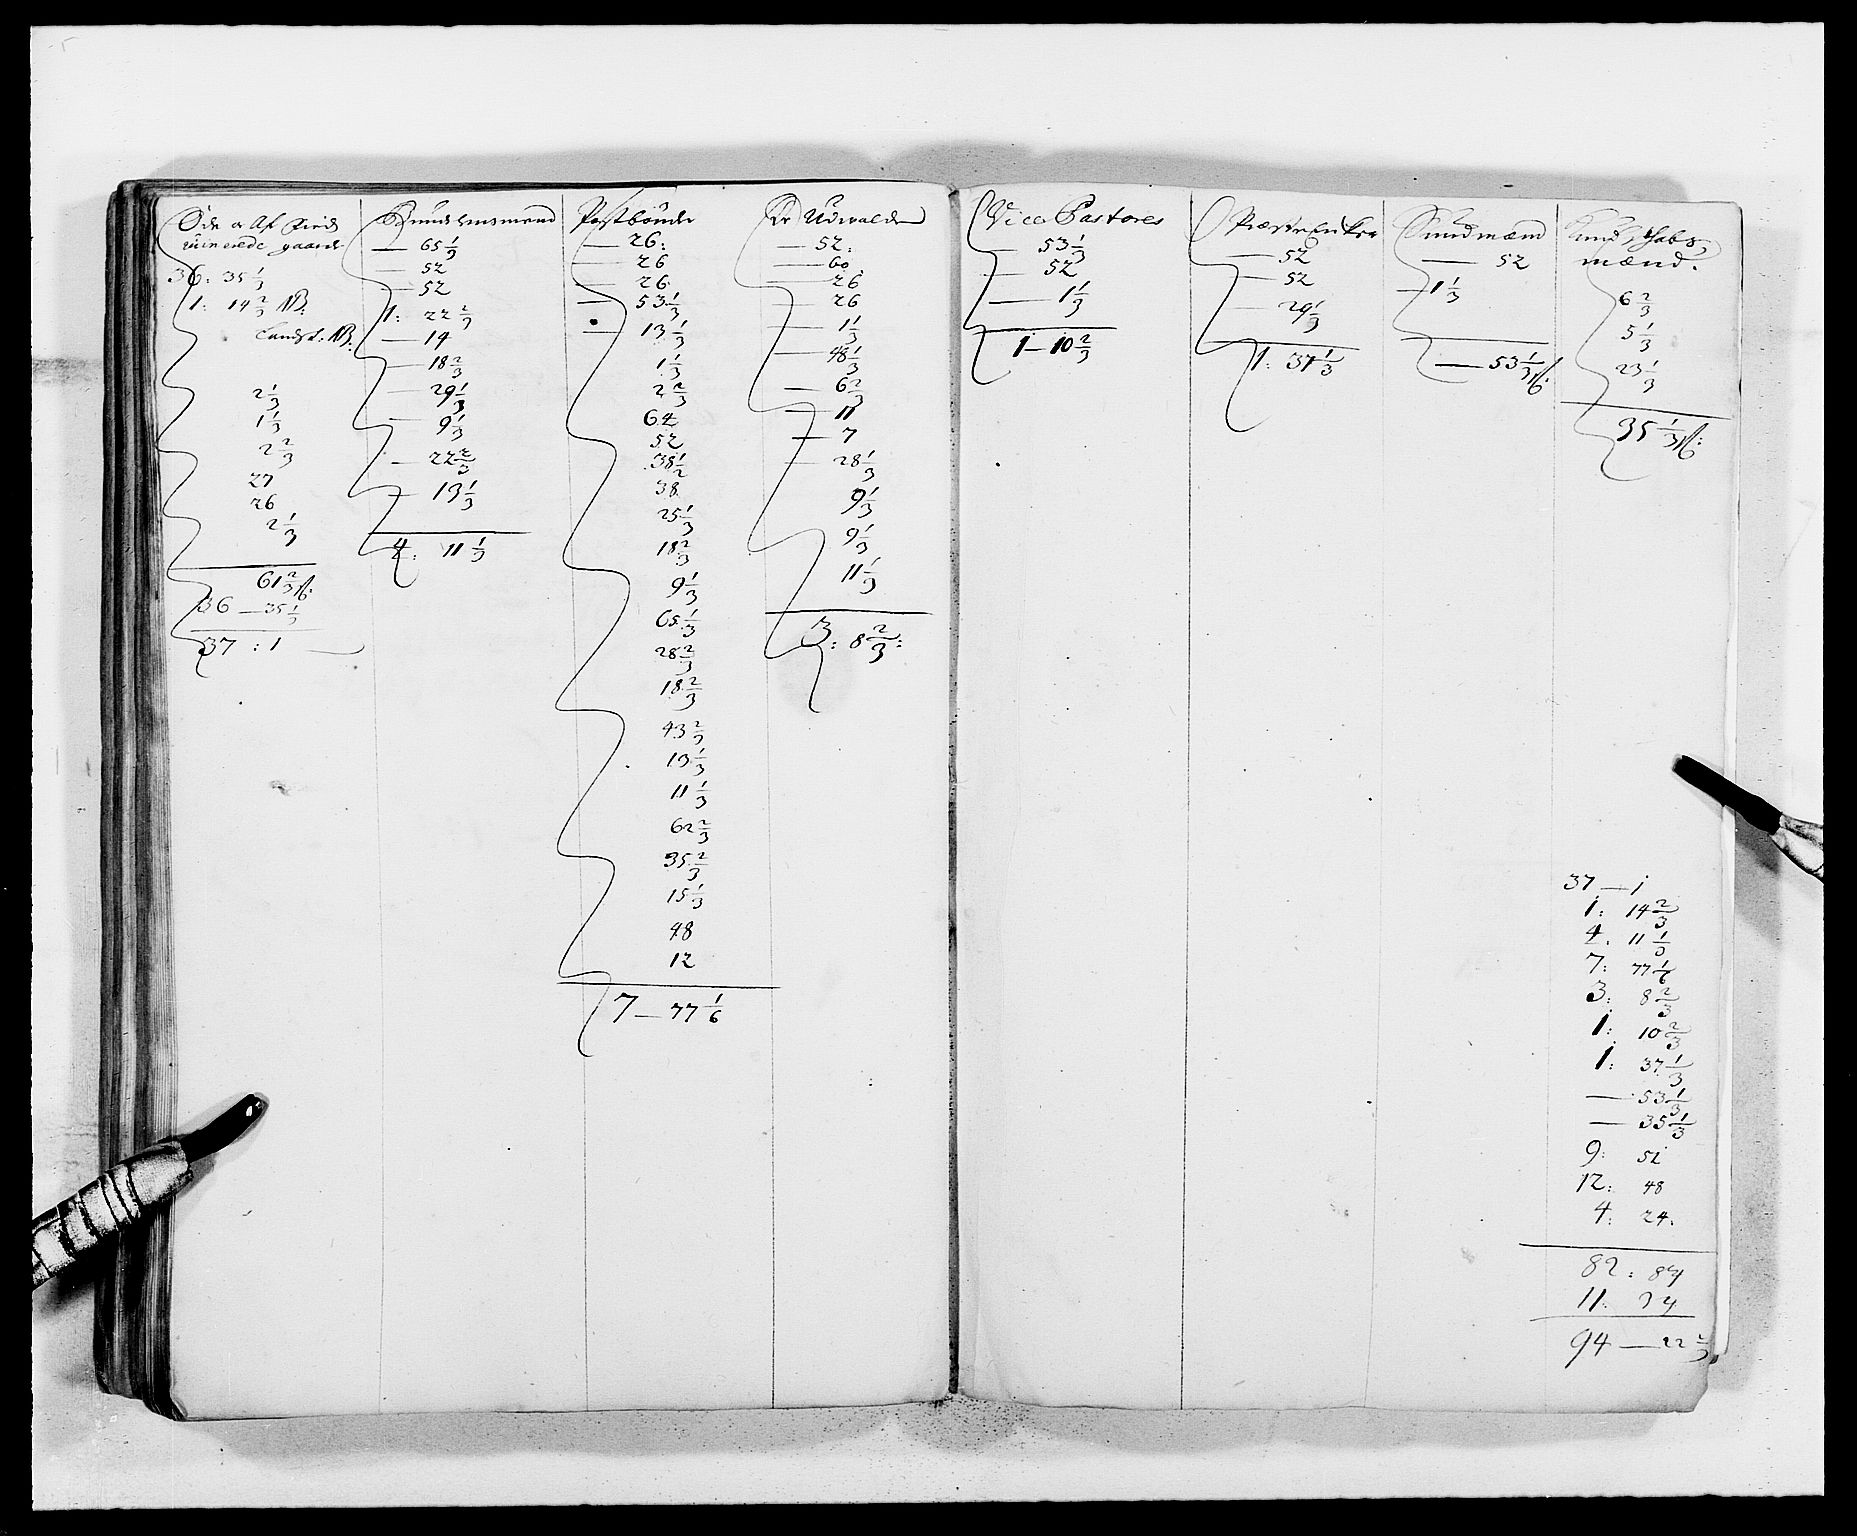 Öde a Af Fiend
ruinerede gaarde
36: 35 1/3
1: 14 2/3 NB:
Landst: NB:
2 1/3
1 1/3
2 2/3
27
26
2 1/3
61 2/3 ß:
36 — 35 1/3
37 : 1 —
— 65 1/3
— 52
— 52
1: 22 2/3
— 14
— 18 2/3
— 29 1/3
— 9 1/3
— 22 2/3
— 13 1/3
4: 11 1/3
Postbönder
— 26:
— 26
— 26
— 53 1/3
— 13 1/3
1 1/3
2 2/3
64
52
38 1/2
38
25 1/3
18 2/3
9 1/3
65 1/3
28 2/3
18 2/3
43 2/3
13 1/3
11 1/3
62 2/3
35 2/3
15 1/3
48
12
7 — 77 1/6
De Udvalde
— 52:
— 60
— 26
— 26
— 1 1/3
— 48 1/3
— 6 2/3
— 11
— 7
— 28 1/3
9 1/3
9 1/3
11 1/3
3: 8 2/3:
Vice Pastores
— 53 1/3
— 52
— 1 1/3
1 — 10 2/3
Præste Enker
— 52
— 52
— 29 1/3
1: 37 1/3
Sundmænd
— 52
— 1 1/3
— 53 1/3 ß:
Kundschabs
mænd.
6 2/3
5 1/3
23 1/3
35 1/3 ß:
37 — 1
1: 14 2/3
4: 11 1/3
7: 77 1/6
3: 8 2/3
1: 10 2/3
1: 37 1/3
— 53 1/3
— 35 1/3
9: 51
12: 48
4: 24:
82: 84
11: 34
94 — 22 2/3